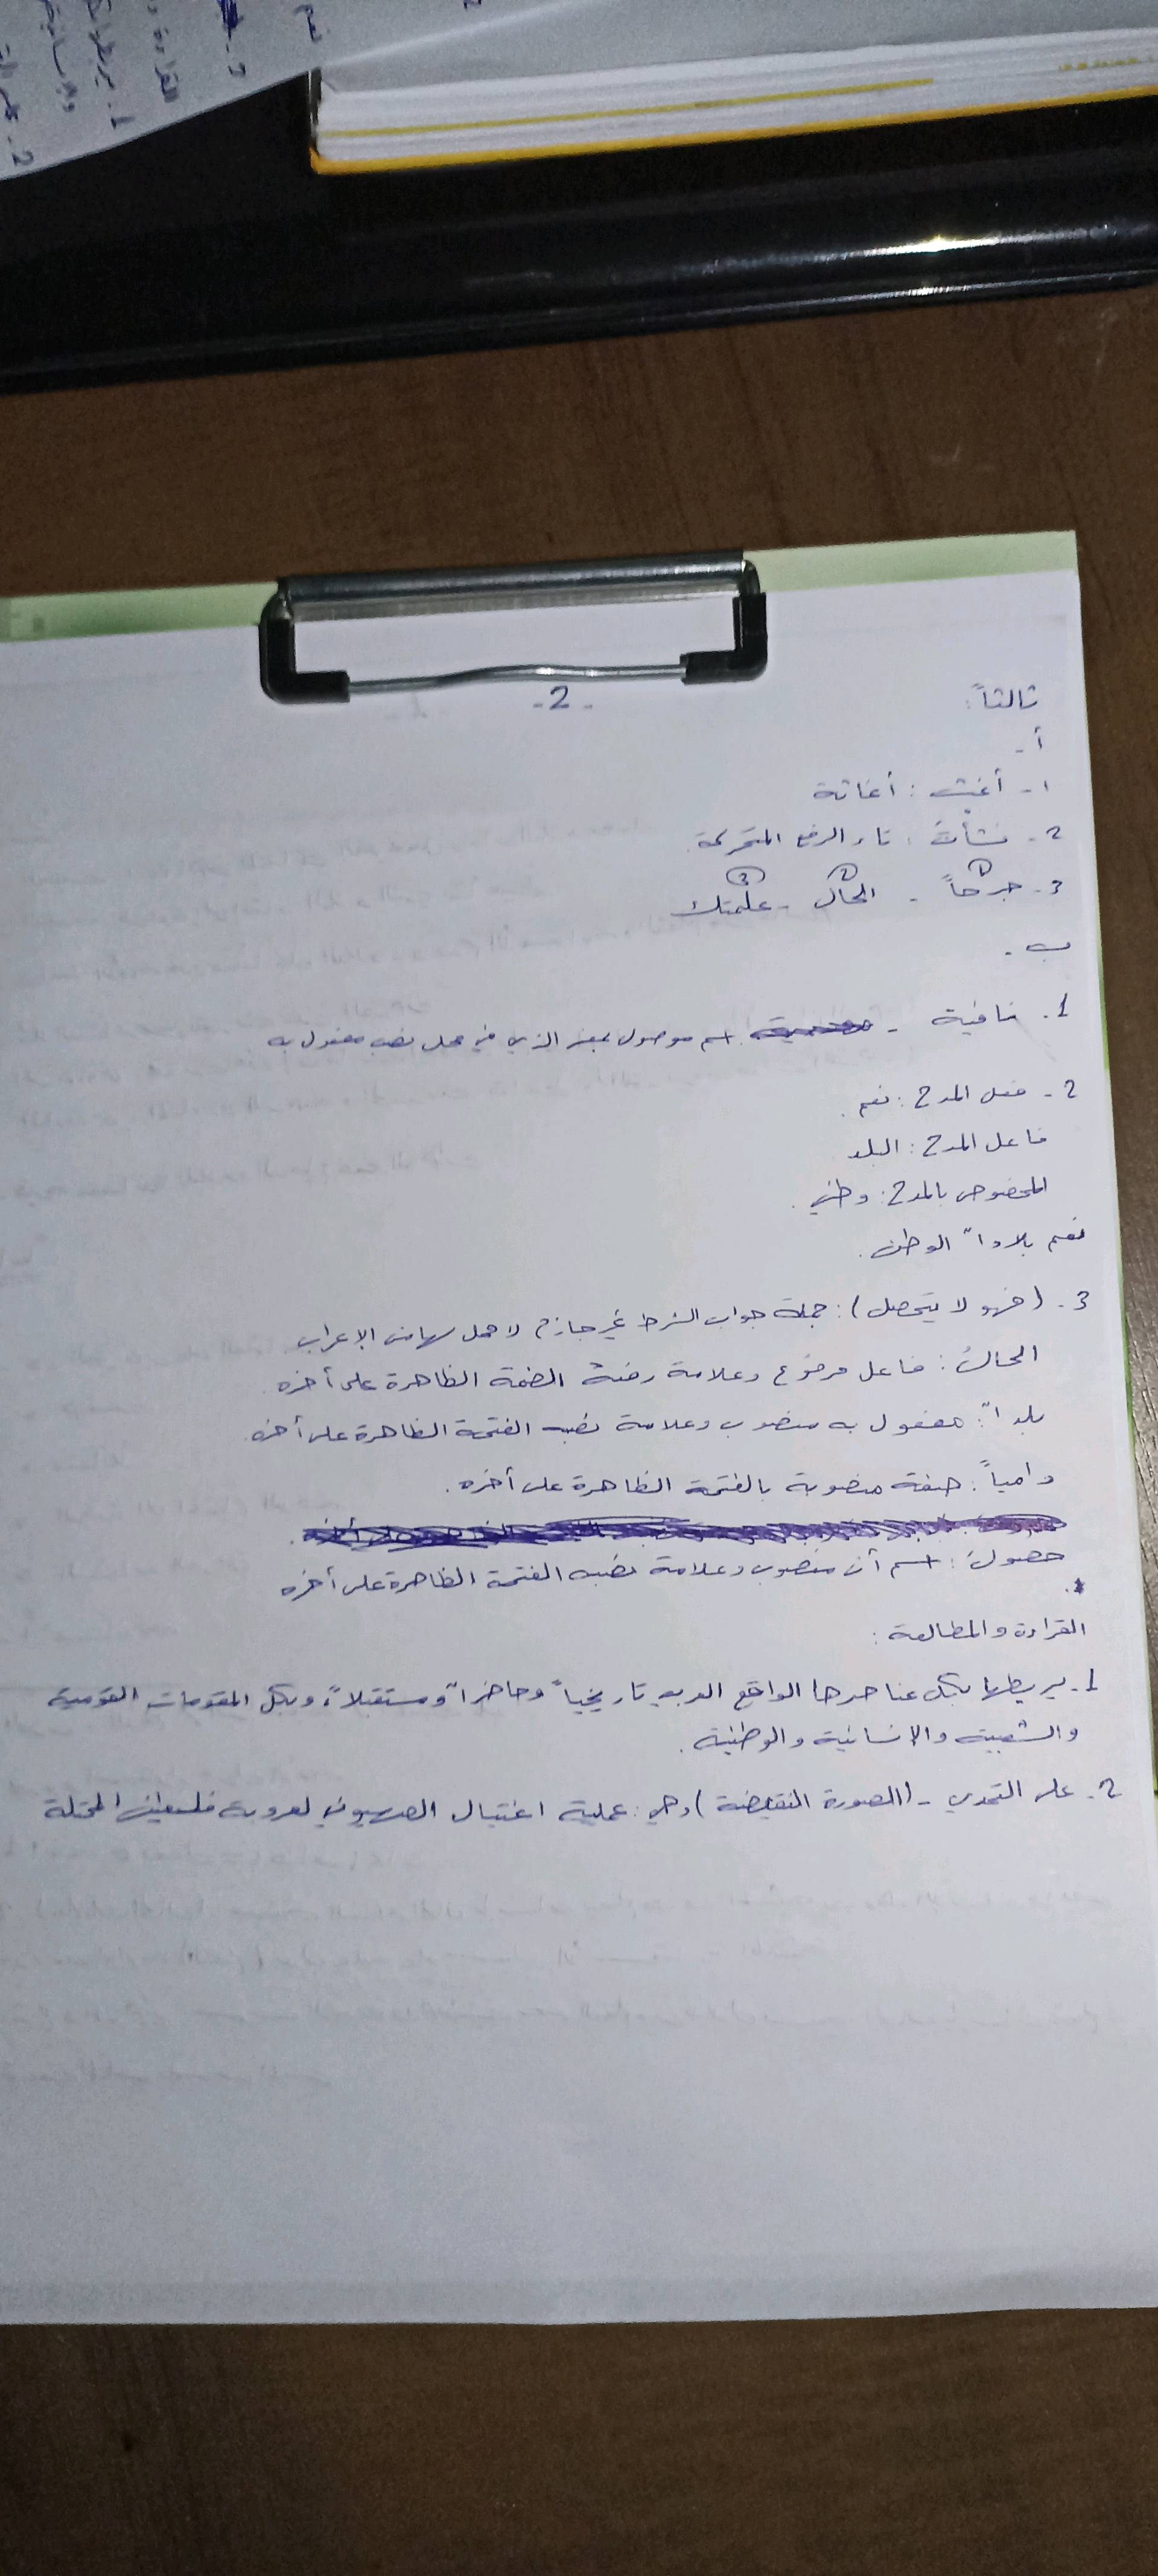 -2-
ثالثاً:
أ-
١- أغث: أغاثة
2- نشأت: تاء الرفع المتحركة.
3- جرحاً ① - الحال ② - علمتك ③
ب-
1- نافية - اسم موصول بمعنى الذي في محل نصب مفعول به
2- فعل المدح: نعم.
فاعل المدح: البلد
المخصوص بالمدح: وطني.
نعم بلاداً الوطن.
3- (فهو لا يتحصل): جملة جواب الشرط غير جازم لا محل لها من الإعراب
الحال: فاعل مرفوع وعلامة رفعه الضمة الظاهرة على أخره
بلداً: مفعول به منصوب وعلامة نصبه الفتحة الظاهرة على أخره.
دامياً: صفة منصوبة بالفتحة الظاهرة على أخره.
حصول: اسم أن منصوب وعلامة نصبه الفتحة الظاهرة على أخره
القراءة والمطالعة:
1- يربطها بكل عناصرها الواقع العربي تاريخياً وحاضراً ومستقبلاً، وبكل المقومات القومية
والشعبية والإنسانية والوطنية.
2- على التحدي - (الصورة النقيضة) وهي: عملية اغتيال الصهيوني لعروبة فلسطين المحتلة